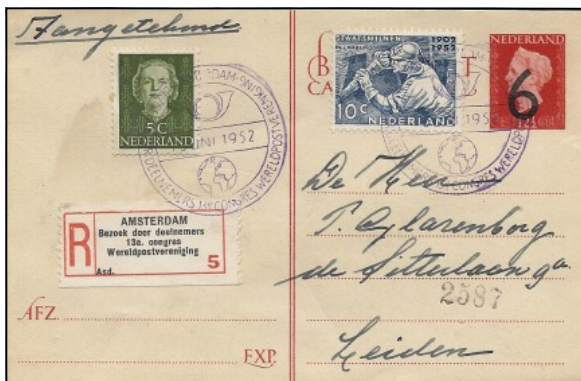 Aangetekend
5C
NEDERLAND
STAATSMIJNEN
1902
1952
10C
NEDERLAND
NEDERLAND
6
JUNI 1952
DEELNEMERS 13e CONGRES WERELDPOSTVERENIGING
R
AMSTERDAM
Bezoek door deelnemers
13e. congres
Wereldpostvereniging
Asd.
5
De Heer
de Sitterlaan
2587
Leiden
AFZ.
EXP.